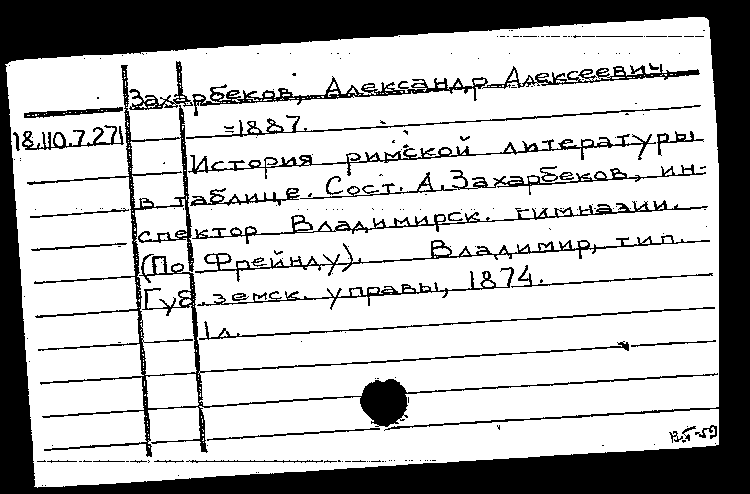 Захарбеков, Александр Алексеевич,
=1887.
18.110.7.271
История римской литературы
в таблице. Сост. А. Захарбеков, ин-
спектор Владимирск. гимназии.
(По Фрейнду). Владимир, тип.
Губ. земск. управы, 1874.
1 л.